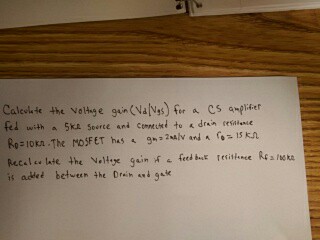 Calculate the voltage gain (Vd/Vgs) for a CS amplifier
fed with a 5kΩ source and connected to a drain resistance
RD=10KΩ. The MOSFET has a gm=2mA/V and a ro=15KΩ
Recalculate the voltage gain if a feedback resistance Rf=100KΩ
is added between the Drain and gate